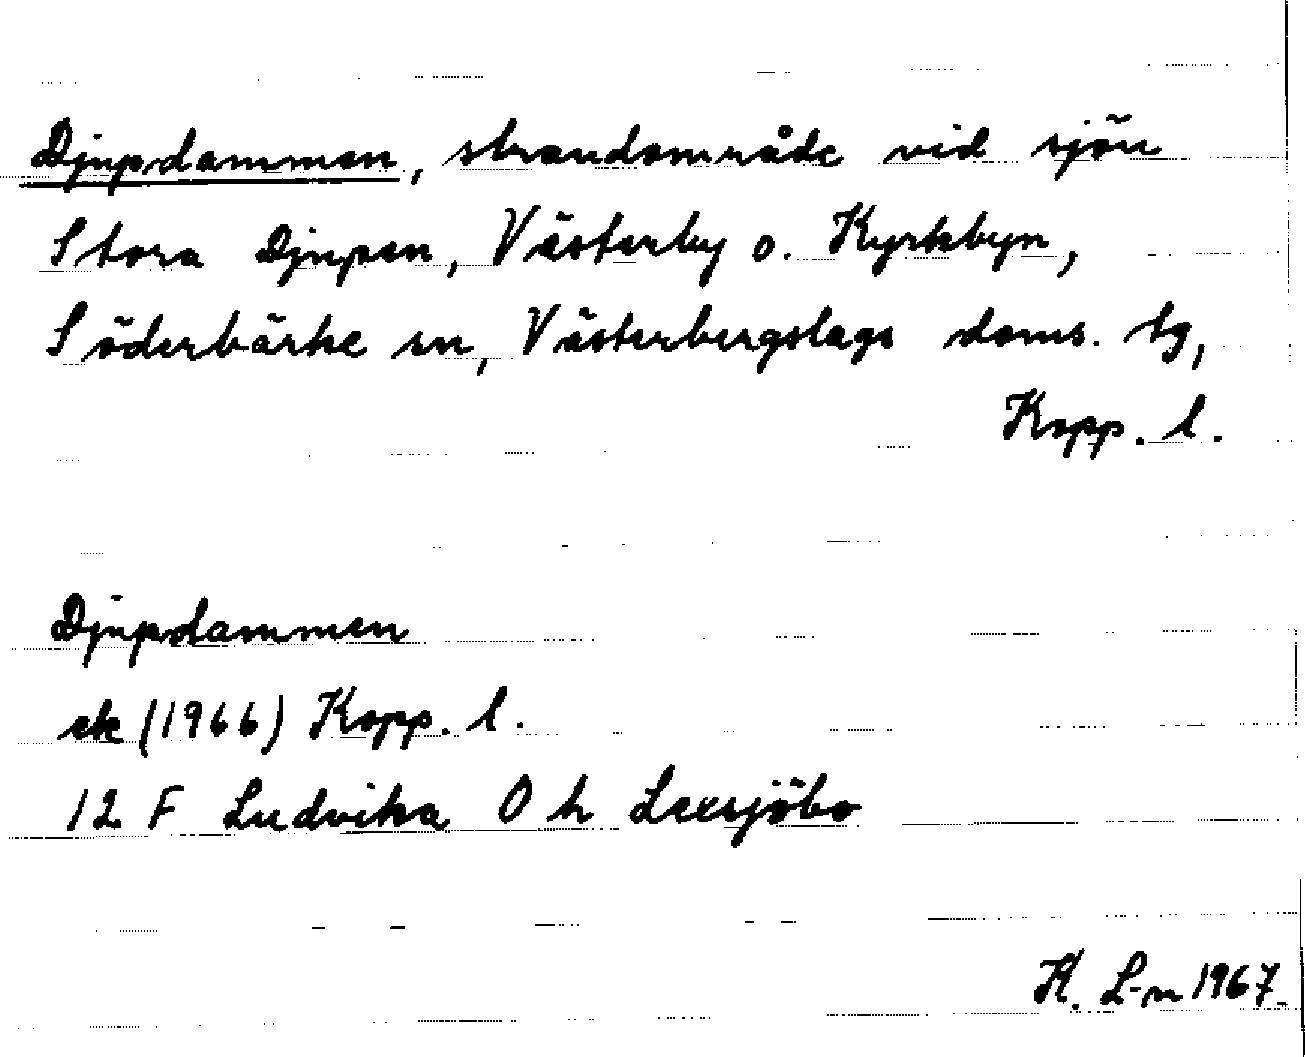 Djupdammen, strandområde vid sjön
Stora Djupen, Västerby o. Kyrkbyn,
Söderbärke sn, Västerbergslags doms. tg,
Kopp. l.
Djupdammen
ek (1966) Kopp. l.
12 F Ludvika O h Lexsjöbo
K. L-m 1967